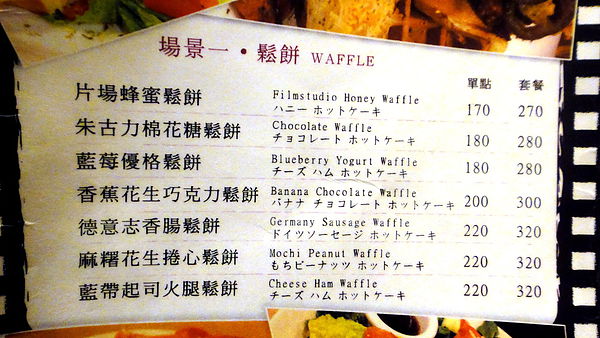 場景一・鬆餅 WAFFLE
單點 套餐
片場蜂蜜鬆餅 Filmstudio Honey Waffle 170 270
ハニー ホットケーキ
朱古力棉花糖鬆餅 Chocolate Waffle 180 280
チョコレート ホットケーキ
藍莓優格鬆餅 Blueberry Yogurt Waffle 180 280
チーズ ハム ホットケーキ
香蕉花生巧克力鬆餅 Banana Chocolate Waffle 200 300
バナナ チョコレート ホットケーキ
德意志香腸鬆餅 Germany Sausage Waffle 220 320
ドイツソーセージ ホットケーキ
麻糬花生捲心鬆餅 Mochi Peanut Waffle 220 320
もちピーナッツ ホットケーキ
藍帶起司火腿鬆餅 Cheese Ham Waffle 220 320
チーズ ハム ホットケーキ